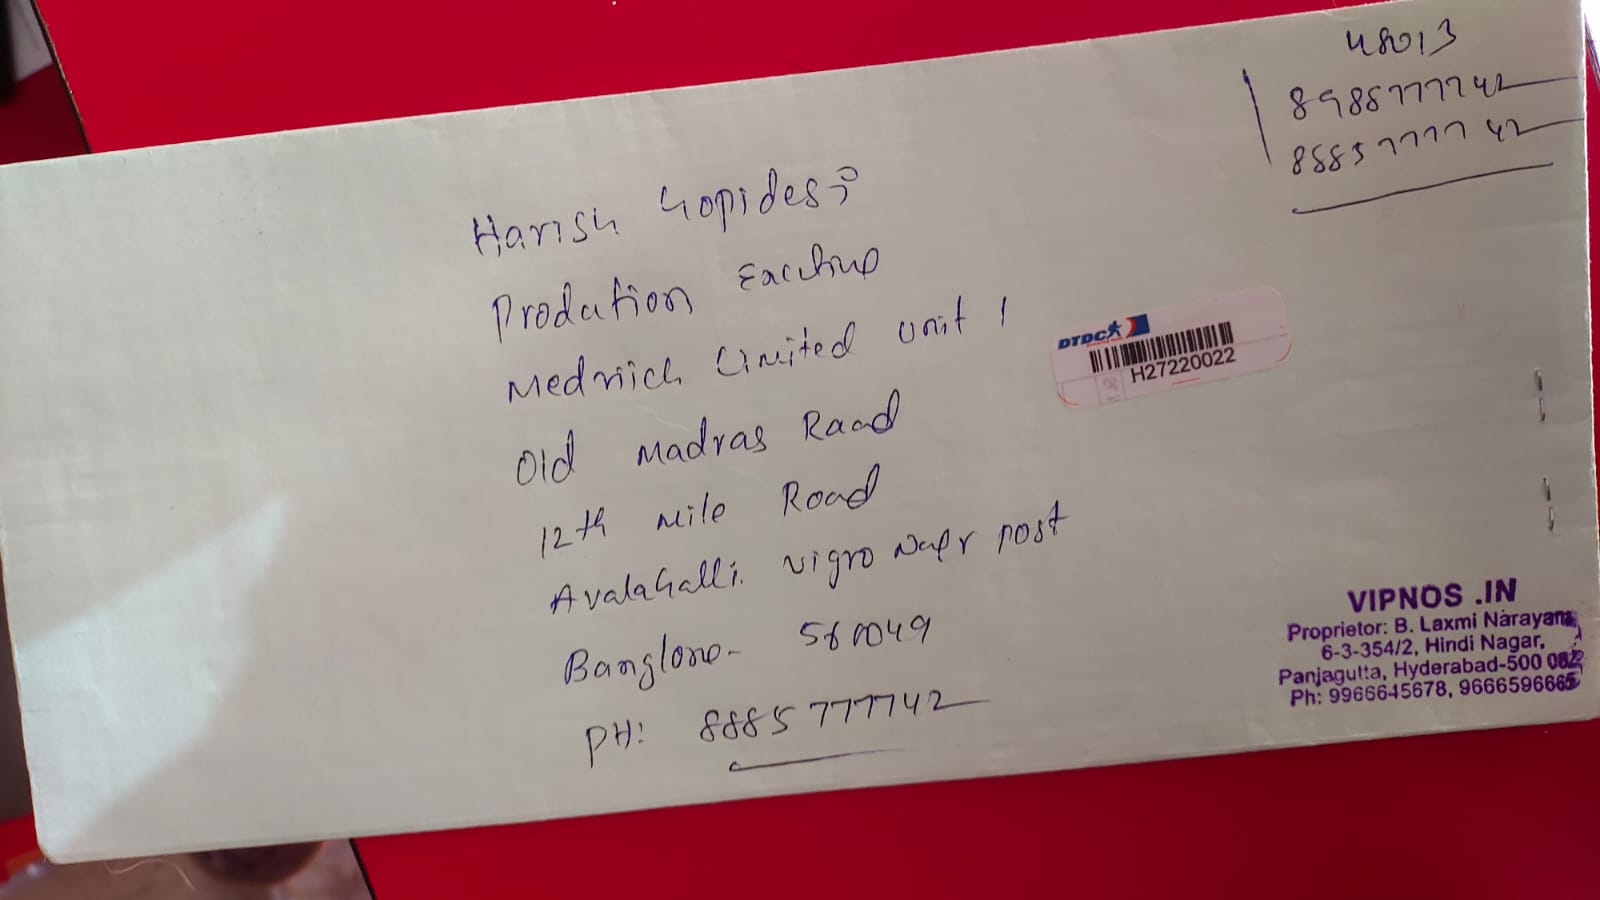 48013
8985777742
8885777742
Harish Gopidesi
Prodution Excutive
Medriich Limited Unit 1
Old Madras Raad
12th Mile Road
Avalahalli. Post
Banglore- 560049
PH: 8885777742
DTDC
H27220022
VIPNOS .IN
Proprietor: B. Laxmi Narayana
6-3-354/2, Hindi Nagar,
Panjagutta, Hyderabad-500 082
Ph: 9966645678, 9666596665